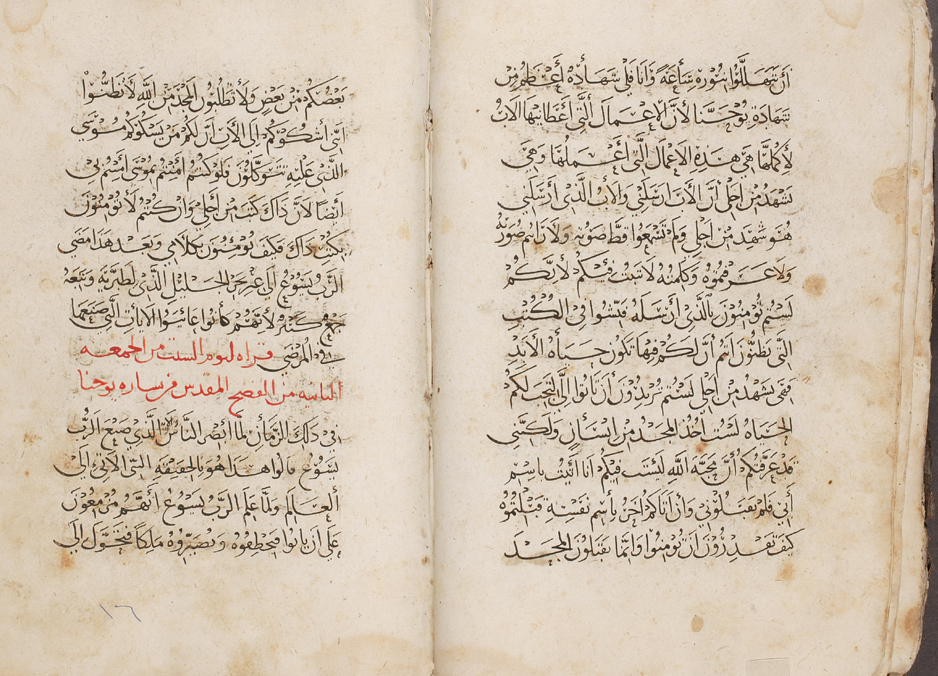 أن تتهللوا بنوره ساعة وأنا فلي شهادة أعظم من
شهادة يوحنا لأن الاعمال التي أعطانيها الاب
لأكملها هي هذه الاعمال التي أعملها وهي
تشهد من اجلي أن الاب ارسلني والاب الذي أرسلني
هو شهد من اجلي ولم تسمعوا قط صوته ولا رأيتم صورته
ولا عرفتموه وكلمته لا تثبت فيكم لأنكم
لستم تؤمنون بالذي أرسله فتشوا في الكتب
التي تظنون انتم أن لكم فيها تكون حياة الأبد
فهي تشهد من اجلي لستم تريدون أن تأتوا إلي لتجب لكم
الحياة لست اخذ المجد من انسان ولكنني
قد عرفتكم أن محبة الله ليست فيكم أنا أتيت باسم
أبي فلم تقبلوني وان أتاكم اخر بأسم نفسه قبلتموه
كيف تقدرون أن تؤمنوا وانما تقبلون المجد
بعضكم من بعض ولا تطلبون المجد من الله لا تظنوا
اني أشكوكم إلى الأب ان لكم من يشكوكم موسى
الذي عليه تتوكلون فلو كنتم امنتم بموسى امنتم بي
ايضا لأن ذاك كتب من أجلي وان كنتم لا تؤمنون
بكتب ذاك فكيف تؤمنون بكلامي وبعد هذا مضى
الرب يسوع الى عبر بحر الجليل الذي لطبرية وتبعه
جمع كثير لأنهم كانوا عاينوا الآيات التي صنعها
في المرضى قراه ليوم السبت من الجمعه
الثانيه من الفصح المقدس من بشاره يوحنا
في ذلك الزمان لما ابصر الناس الآية الذي صنع الرب
يسوع قالوا هذا هو بالحقيقة النبي الاتي إلى
العالم ولما علم الرب يسوع انهم مزمعون
على أن يأتوا فيخطفوه ويصيروه ملكا فتحول إلى
١٦